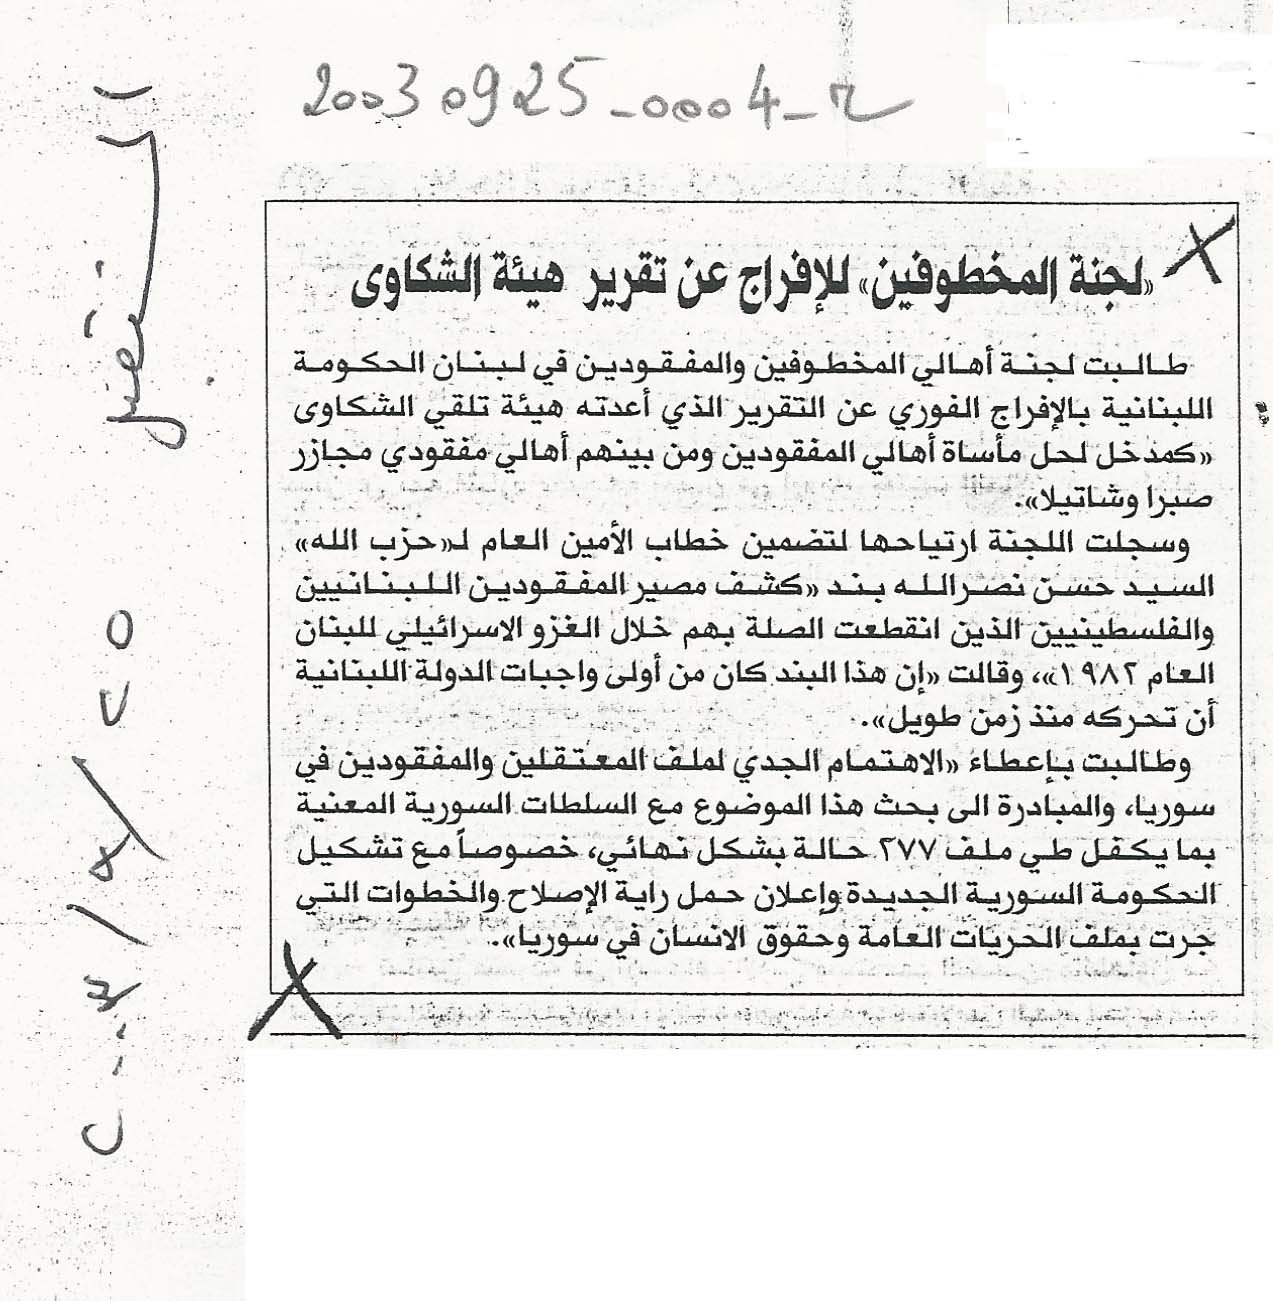 20030925_0004_r
«لجنة المخطوفين» للإفراج عن تقرير هيئة الشكاوى
طالبت لجنة أهالي المخطوفين والمفقودين في لبنان الحكومة
اللبنانية بالإفراج الفوري عن التقرير الذي أعدته هيئة تلقي الشكاوى
«كمدخل لحل مأساة أهالي المفقودين ومن بينهم أهالي مفقودي مجازر
صبرا وشاتيلا».
وسجلت اللجنة ارتياحها لتضمين خطاب الأمين العام لـ«حزب الله»
السيد حسن نصرالله بند «كشف مصير المفقودين اللبنانيين
والفلسطينيين الذين انقطعت الصلة بهم خلال الغزو الاسرائيلي للبنان
العام ١٩٨٢»، وقالت «إن هذا البند كان من أولى واجبات الدولة اللبنانية
أن تحركه منذ زمن طويل».
وطالبت بإعطاء «الاهتمام الجدي لملف المعتقلين والمفقودين في
سوريا، والمبادرة الى بحث هذا الموضوع مع السلطات السورية المعنية
بما يكفل طي ملف ٢٧٧ حالة بشكل نهائي، خصوصاً مع تشكيل
الحكومة السورية الجديدة وإعلان حمل راية الإصلاح والخطوات التي
جرت بملف الحريات العامة وحقوق الانسان في سوريا».
المستقبل